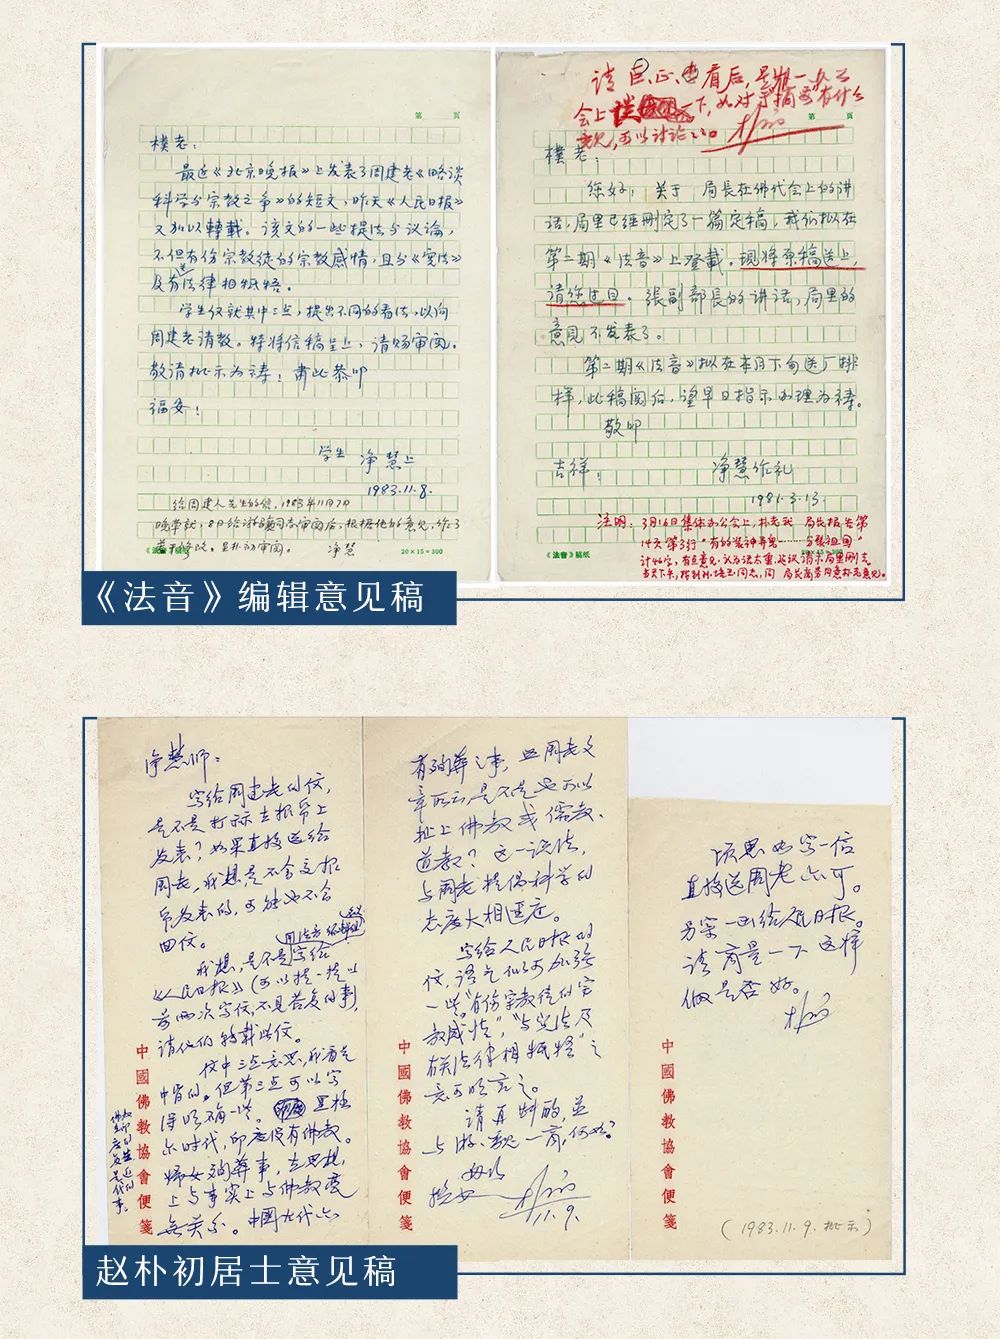 第 页
樸老：
最近《北京晚报》上发表了周建老《略谈
科学与宗教之争》的短文，昨天《人民日报》
又加以轉载。该文的一些提法与议论，
不但有伤宗教徒的宗教感情，且与《宪法》
及有关法律相牴牾。
学生仅就其中三点，提出不同的看法，以向
周建老请教。特将信稿呈上，请赐审阅。
敬请批示为祷！肃此恭叩
福安！
学生 净慧上
1983.11.8.
给周建人先生的信，1983年11月7日
晚草就，8日给游骧同志审阅后，根据他的意见，作了
若干修改。呈朴初审阅。 净慧
《法音》稿纸 20×15=300
请巨、正、看后，是推一办公
会上谈一下，如对于摘要有什么
意见，可以讨论之。 朴初
第 页
樸老：
您好！关于 局長在佛代会上的讲
话，局里已经删定了一篇定稿，我们拟在
第二期《法音》上登載，现将原稿送上，
请您过目。張副部長的讲话，局里的
意见不发表了。
第二期《法音》拟在本月下旬送厂排
样，此稿阅后，望早日指示办理为祷。
敬叩
吉祥！ 净慧作礼
1981.3.13.
注明：3月16日集体办公会上，朴老就 局長报告第
14页第3行“有的装神弄鬼……分裂祖国”
计46字，有点意见，认为话太重，建议请示局里删去。
《法音》稿纸 20×15=300
《法音》编辑意见稿
净慧师：
写给周建老的信，
是不是打祘在报帋上
发表？如果直接送给
周老，我想是不会交报
帋发表的，可能也不会
回信。
我想，是不是用法音编辑部名义写给
《人民日报》（可以提一提以
前两次写信，不见答复的事），
请他们转载此信。
信中三点意思，我看是
中肯的。但第三点可以写
得明确一些。黑格
尔时代，印度没有佛教。
佛教在印度的复兴是近代的事。
婦女殉葬事，在思想
上与事实上与佛教毫
無关系。中國古代亦
中國佛教協會便箋
有殉葬之事，照周老文
章所云，是不是也可以
扯上佛教或儒教、
道教？这一说法，
与周老提倡科学的
态度大相逕庭。
写给人民日报的
信，语气似可加强
一些。“有伤宗教徒的宗
教感情”，“与宪法及
有关法律相牴牾”之
意可明言之。
请再斟酌，並
与游、魏一商，何如？
朴初
11.9.
中國佛教協會便箋
顷思如写一信
直接送周老亦可。
另案一函给人民日报。
请商量一下这样
做是否好。
朴初
中國佛教協會便箋
（1983.11.9.批示）
赵朴初居士意见稿